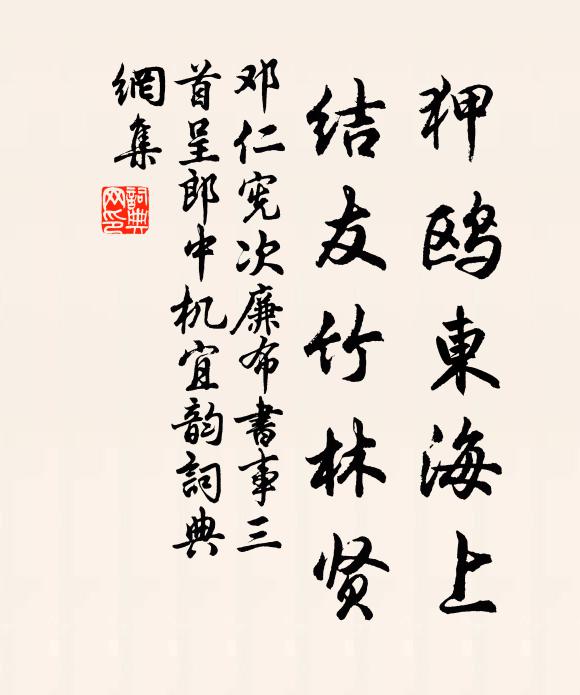 狎鸥東海上
结友竹林贤
邓仁宪次廉布書事三
首呈郎中机宜韵詞典
網集
詞典網印